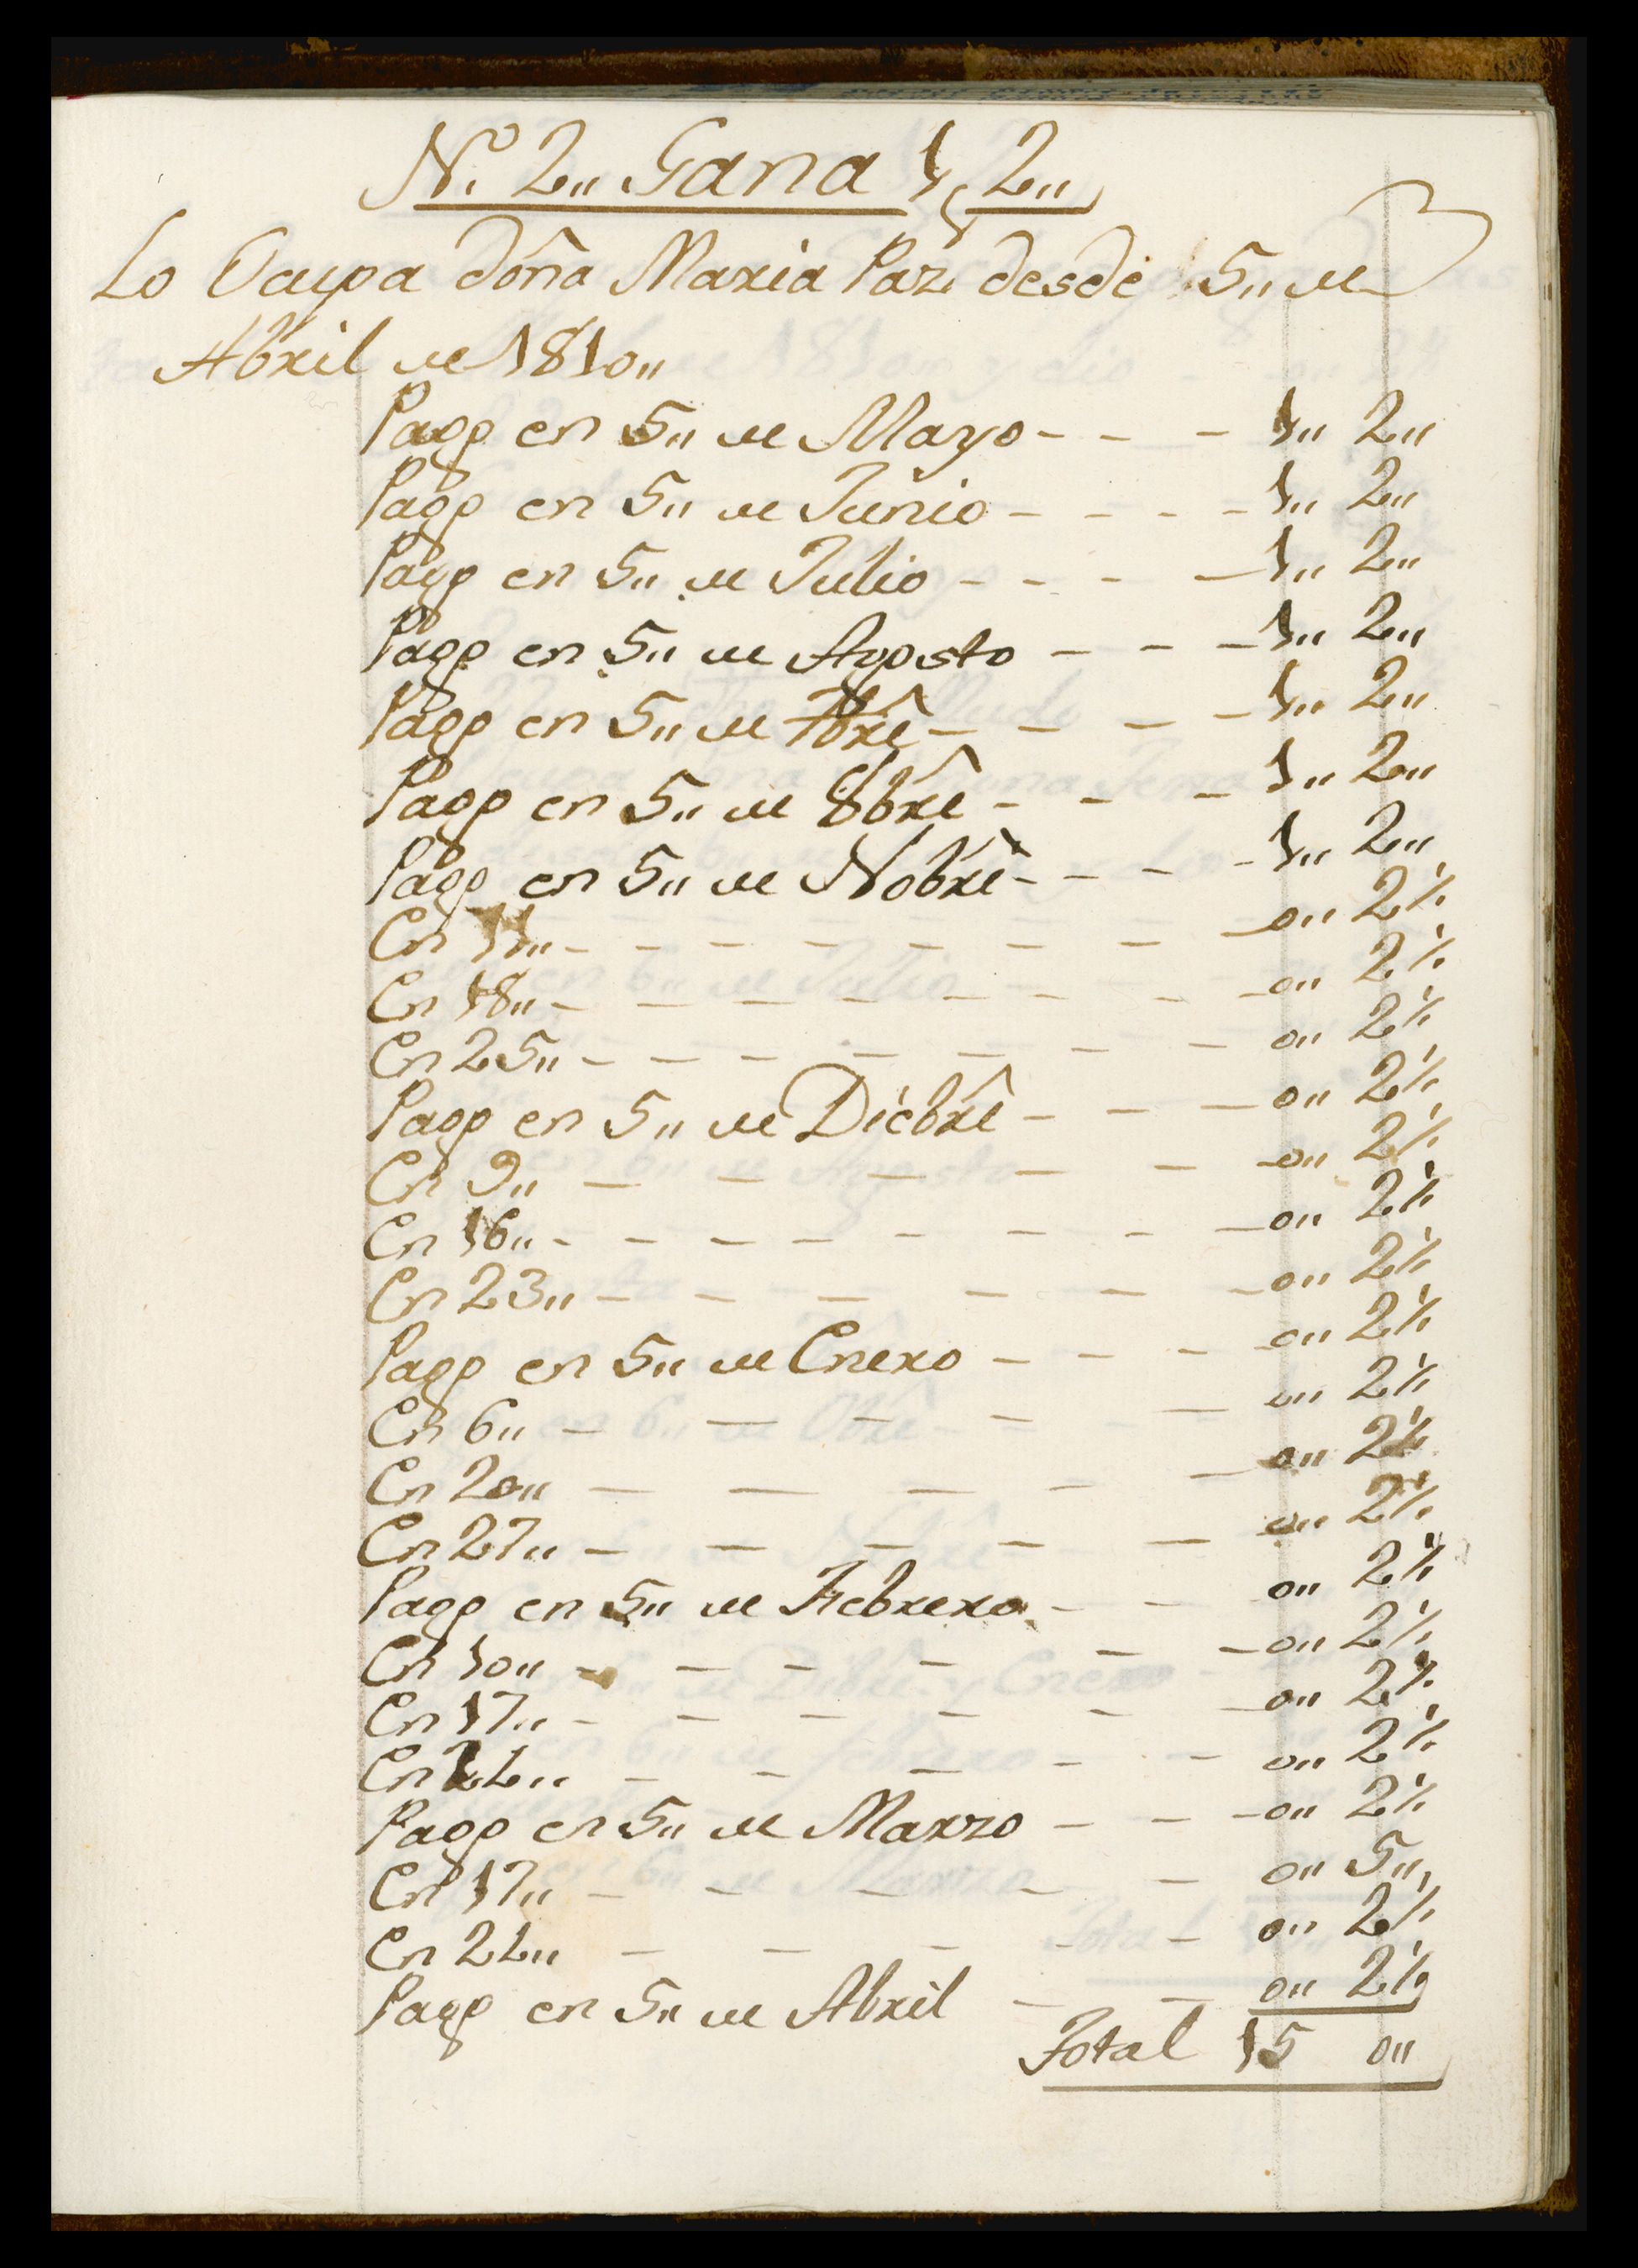 N.º 2,, Gana 1, 2,,
Lo Ocupa doña Maria Paz desde 5,, de
Abril de 1810,,
Pago en 5,, de Mayo - - - 1,, 2,,
Pago en 5,, de Junio - - - - 1,, 2,,
Pago en 5,, de Julio - - - - 1,, 2,,
Pago en 5,, de Agosto - - - 1,, 2,,
Pago en 5,, de 7bre - - - - 1,, 2,,
Pago en 5,, de 8bre - - - 1,, 2,,
Pago en 5,, de Nobre - - - - 1,, 2,,
En 11,, - - - - - - - - 0,, 2½
En 18,, - - - - - - - - 0,, 2½
En 25,, - - - - - - - 0,, 2½
Pago en 5,, de Dicbre - - - 0,, 2½
En 9,, - - - - - - 0,, 2½
En 16,, - - - - - - - - 0,, 2½
En 23,, - - - - - - 0,, 2½
Pago en 5,, de Enero - - - - 0,, 2½
En 6,, - - - - - 0,, 2½
En 20,, - - - - - 0,, 2½
En 27,, - - - - - - 0,, 2½
Pago en 5,, de Febrero - - 0,, 2½
En 10,, - - - - - - 0,, 2½
En 17,, - - - - - - 0,, 2½
En 24,, - - - - - 0,, 2½
Pago en 5,, de Marzo - - - 0,, 2½
En 17,, - - - - - 0,, 5,,
En 24,, - - - - - 0,, 2½
Pago en 5,, de Abril - - 0,, 2½
Total 15 0,,